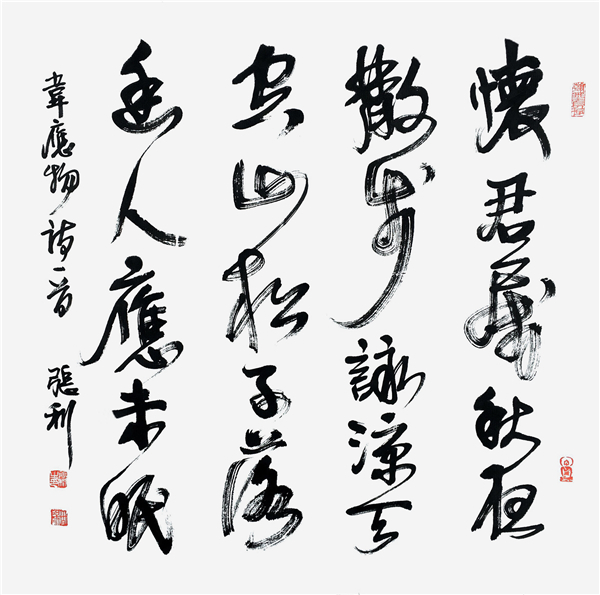 懷君屬秋夜
散步詠涼天
空山松子落
幽人應未眠
韋應物詩一首 張利